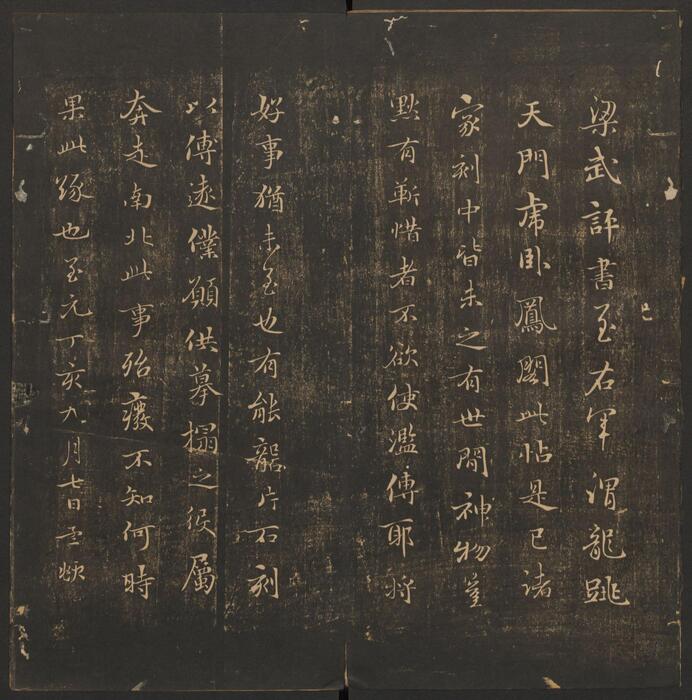 梁武評書至右軍謂龍跳
天門虎臥鳳閣此帖是已諸
家刻中皆未之有世間神物豈
默有靳惜者不欲使濫傳耶將
好事猶未至也有能礱片石刻
以傳遠僕願供摹搨之役屬
奔走南北此事殆癈不知何時
果此緣也至元丁亥九月七日孟頫